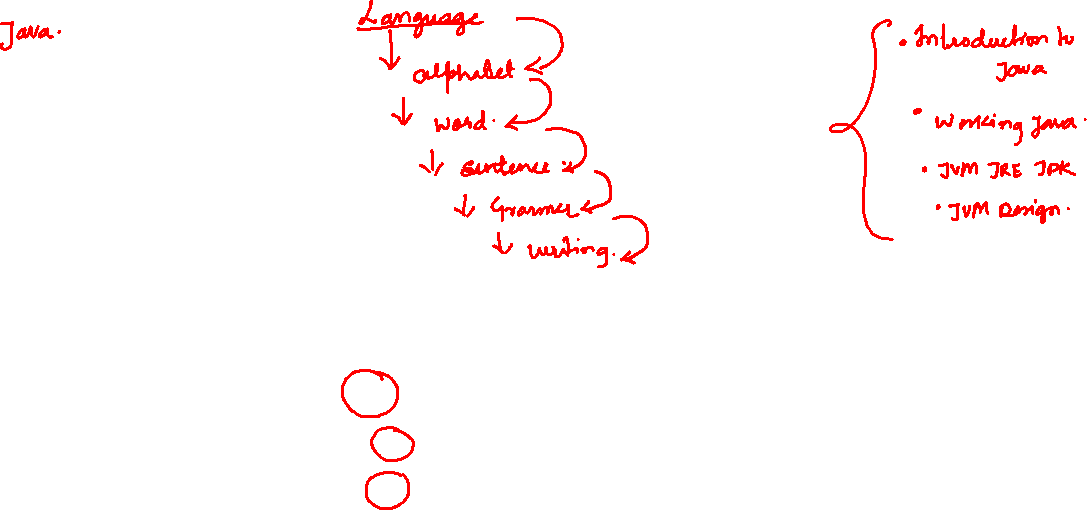 Java.
Language
alphabet
word.
Sentence
Grammer
writing.
• Introduction to
Java
• Working Java.
• JVM JRE JDK
• JVM Design.